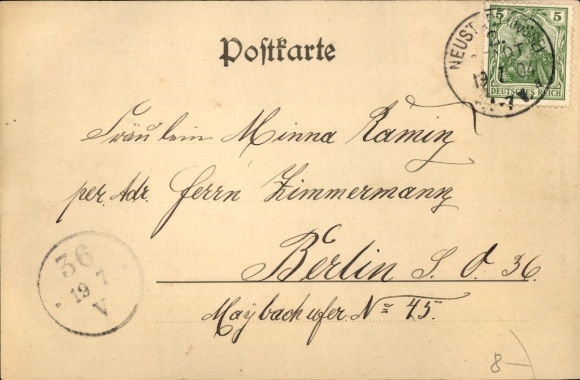 Postkarte
5 5
DEUTSCHES REICH
NEUST
19 7 04
Fräulein Minna Ramin
per. Adr. Herrn Zimmermann
Berlin S. O. 36.
Maybachufer. No 45.
36
19 7
V
8-